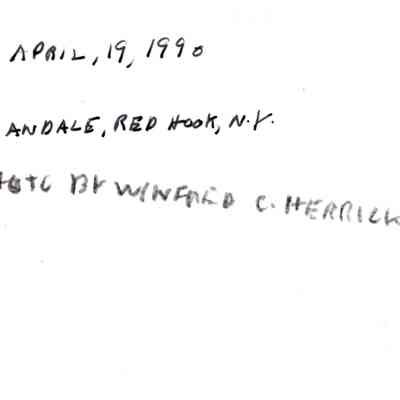 APRIL, 19, 1990
ANDALE, RED HOOK, N.Y.
HOTO BY WINFRED C. HERRICK